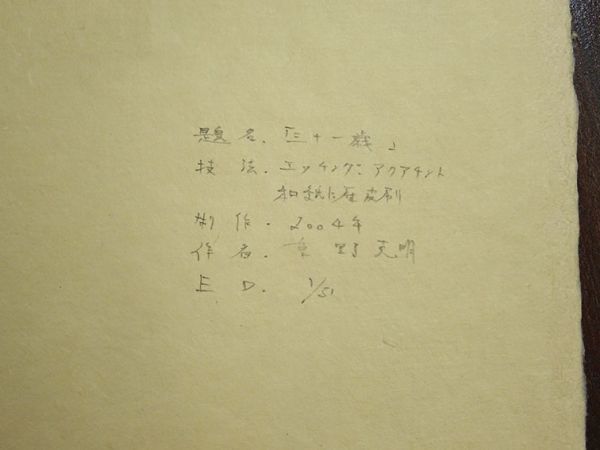 題名.「三十一歳」
技法.エッチング、アクアチント
和紙に雁皮刷
制作.2004年
作者.重野克明
ED. 1/51